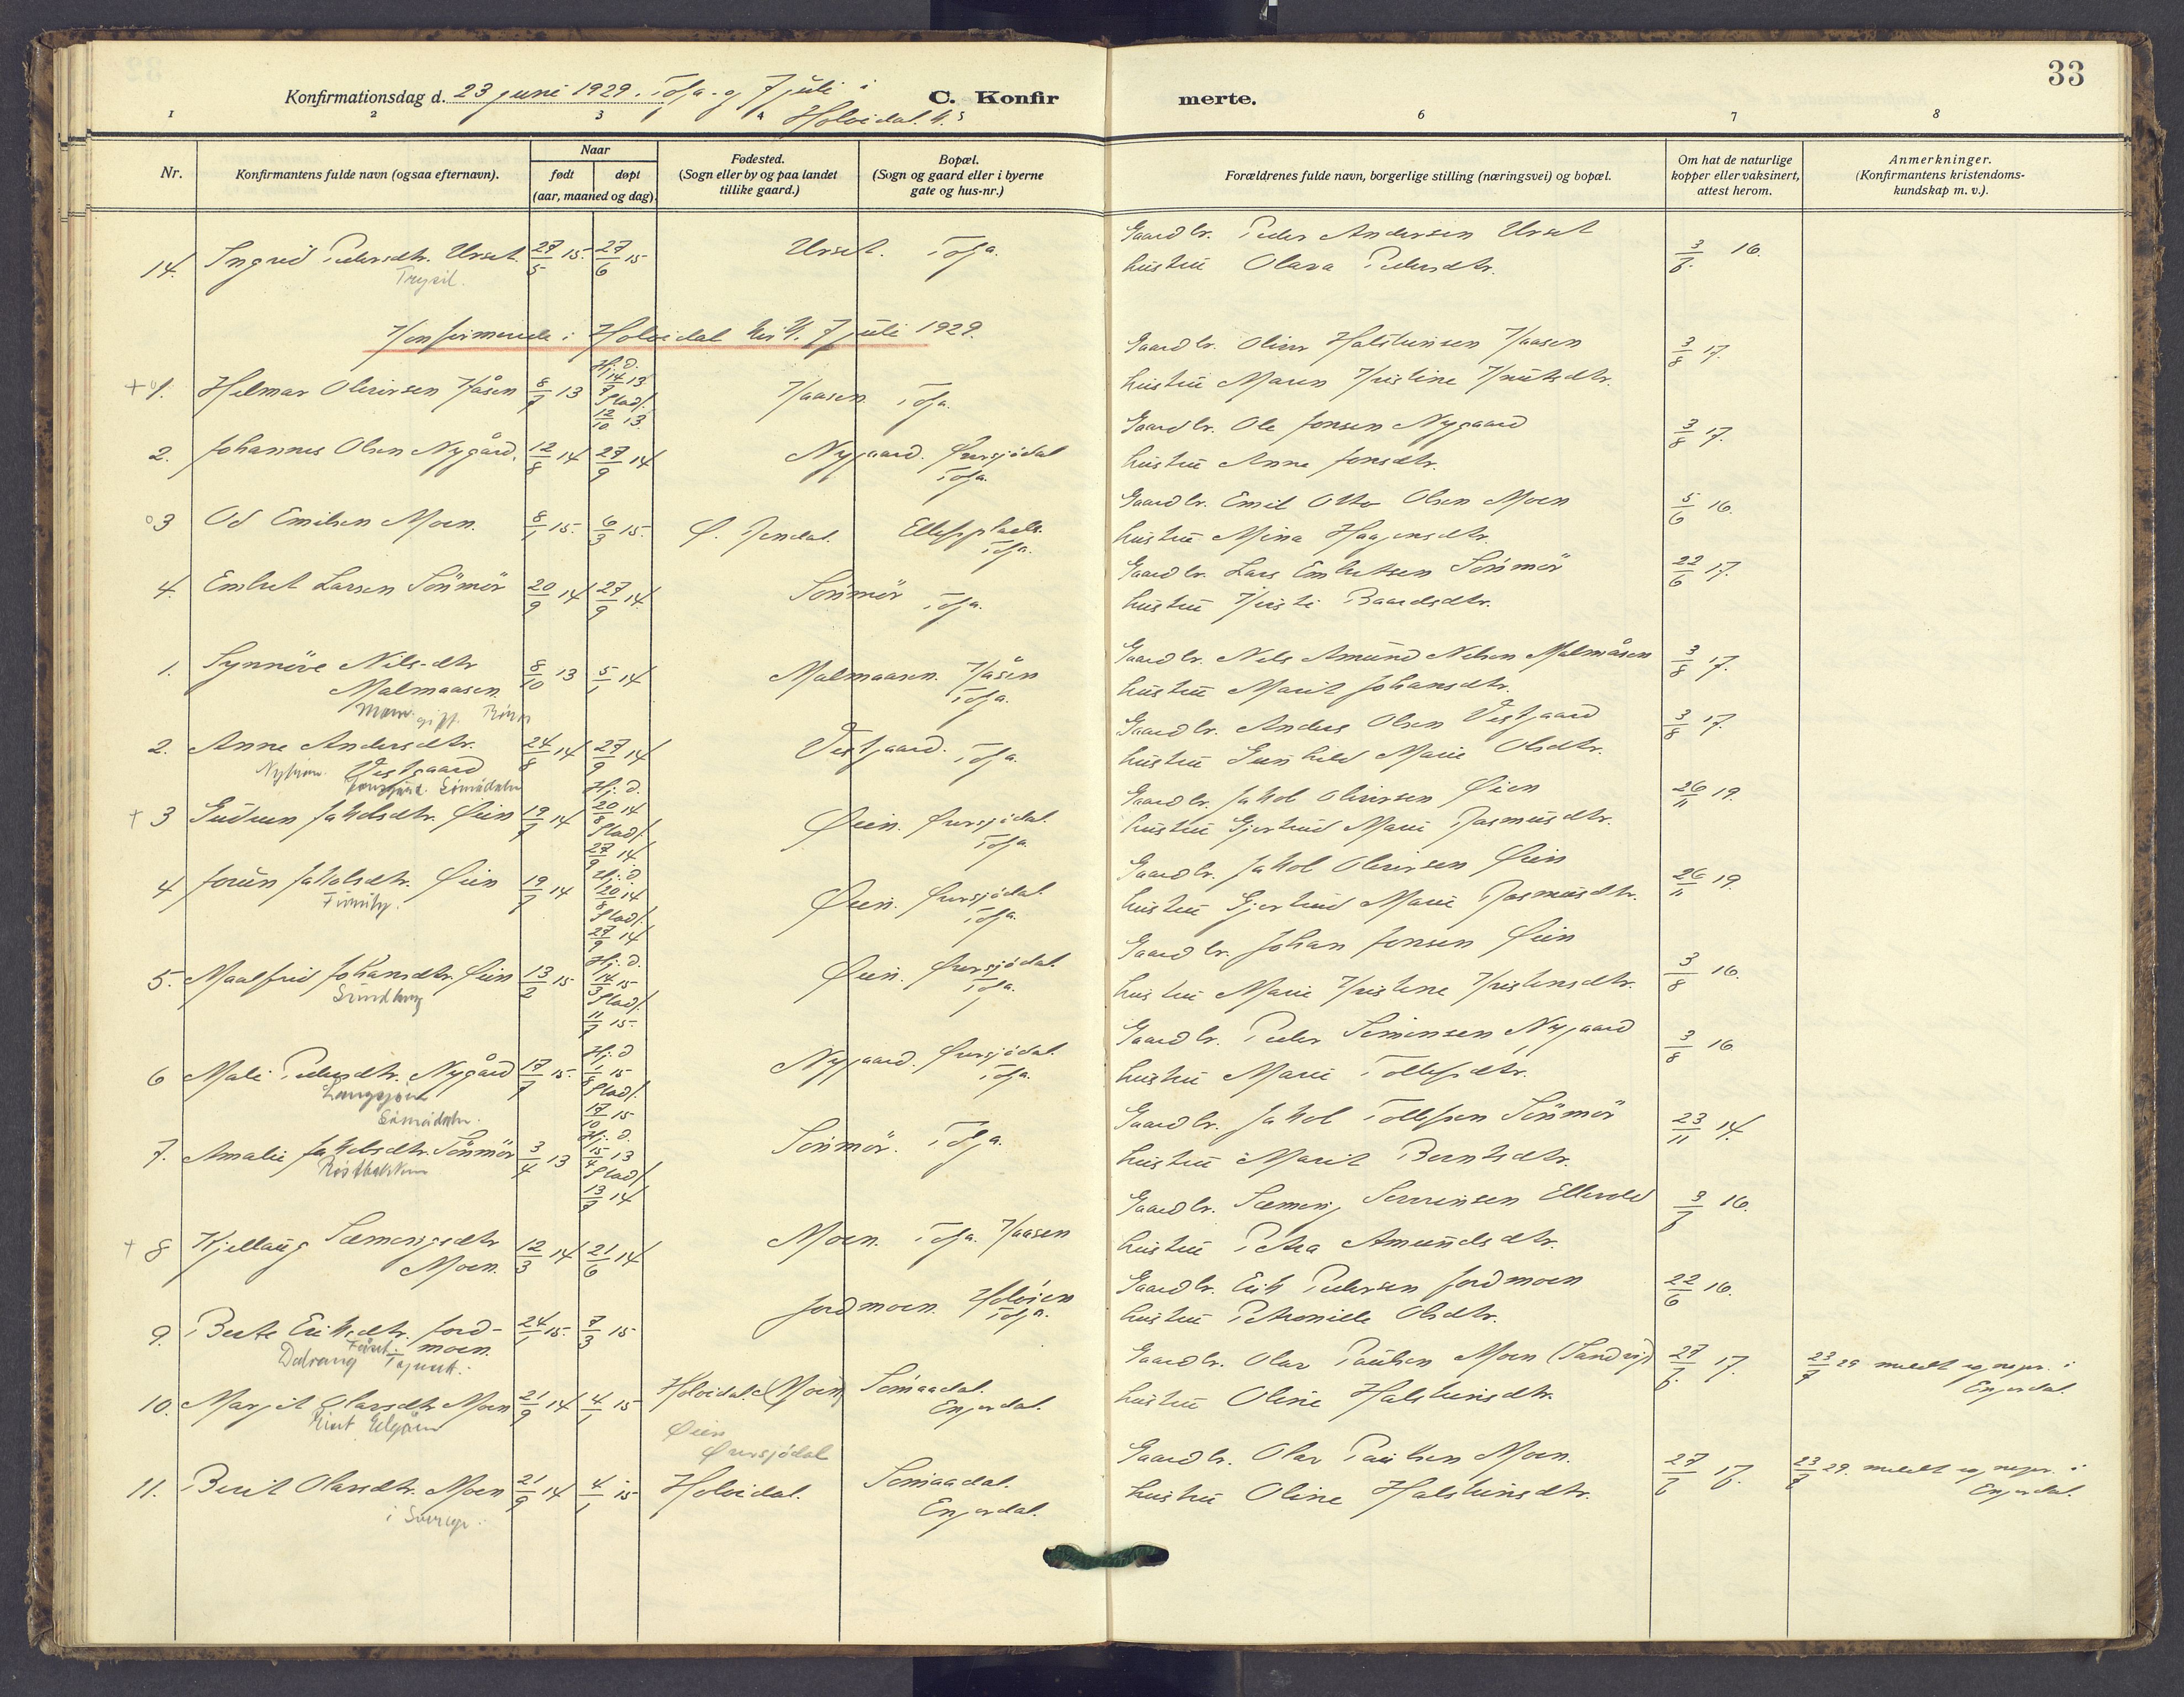 33
Konfirmationsdag d. 23 juni 1929. i Tolga og 7 juli i
Holøidal k.
C. Konfirmerte.
1 2 3 4 5 6 7 8
Nr.
Konfirmantens fulde navn (ogsaa efternavn).
Naar
født
døpt
(aar, maaned og dag).
Fødested.
(Sogn eller by og paa landet
tillike gaard.)
Bopæl.
(Sogn og gaard eller i byerne
gate og hus-nr.)
Forældrenes fulde navn, borgerlige stilling (næringsvei) og bopæl.
Om hat de naturlige
kopper eller vaksinert,
attest herom.
Anmerkninger.
(Konfirmantens kristendoms-
kundskap m. v.).
14. Ingrid Pedersdtr. Urset. 27/5 15. 27/6 15 Urset. Tolga. Gaardbr. Peder Andersen Urset 3/6. 16.
Trysil. hustru Olava Pedersdtr.
Konfirmerede i Holøidal kirk. 7 juli 1929.
+ 1. Hilmar Oliversen Kåsen 8/9 13 Hj. d. 14/9 13 Stadf. 12/10 13. Kaasen Tolga. Gaardbr. Oliver Halsteinsen Kaasen 3/8 17.
hustru Maren Kristine Knutsdtr.
2. Johannes Olsen Nygård. 12/8 14 27/9 14 Nygaard. Øversjødal Gaardbr. Ole Jonsen Nygaard 3/8 17.
Tolga. hustru Anne Jonsdtr.
3 Od Emilsen Moen. 8/1 15. 6/3 15. Ø. Rendal. Gaardbr. Emil Otto Olsen Moen 5/6 16.
Tolga. hustru Mina Haagensdtr.
4. Embret Larsen Sömmör 20/9 14 27/9 14. Sömmör Tolga. Gaardbr. Lars Embretsen Sömmör 22/6 17.
hustru Kristi Baardsdtr.
1. Synnöve Nils-dtr 8/10 13 5/1 14 Malmaasen. Kåsen Gaardbr. Nils Amund Nilsen Malmåsen 3/8 17.
Malmaasen Tolga. hustru Marit Johansdtr.
gift.
2. Anne Andersdtr. 24/8 14 27/9 14 Vestgaard. Tolga. Gaardbr. Anders Olsen Vestgaard 3/8 17.
Vestgaard hustru Gunhild Marie Olsdtr.
Sömådalen
+ 3 Gudrun Jakobsdtr. Øien 19/7 14 Hj. d. 20/8 14 Stadf. 27/9 14 Øien. Øversjødal. Gaardbr. Jakob Oliversen Øien 26/11 19.
Tolga hustru Gjertrud Marie Rasmusdtr.
4 Jorun Jakobsdtr. Øien 19/7 14 Hj. d 20/8 14 Stadf. 27/9 14 Øien. Øversjødal Gaardbr. Jakob Oliversen Øien 26/11 19.
Tolga. hustru Gjertrud Marie Rasmusdtr.
5. Maalfrid Johansdtr. Øien 13/2 15 Hj. d. 14/3 15 Stadf. 11/7 15. Øien. Øversjødal. Gaardbr. Johan Jonsen Øien 3/8 16.
Tolga. hustru Marie Kristine Kristensdtr.
6 Mali Pedersdtr. Nygård 17/7 15. Hj. d 1/8 15 Stadf. 17/10 15 Nygaard. Øversjødal. Gaardbr. Peder Simensen Nygaard 3/8 16.
Langsjöen Tolga. hustru Marie Tollefsdtr.
Sömådalen.
7. Amalie Jakobsdtr. Sömmör 3/4 13 Hj. d. 15/4 13 Stadf. 13/9 14 Sömmör. Tolga. Gaardbr. Jakob Tollefsen Sömmör 23/11 14.
Röstbakken hustru Marit Berntsdtr.
+ 8 Kjellaug Sæmingsdtr 12/3 14 21/6 14 Moen. Tolga. Kaasen Gaardbr. Sæming Ellevold 3/6 16.
Moen. hustru Petra Amundsdtr.
9. Berte Eriksdtr. Jord- 24/1 15. 7/3 15 Jordmoen. Holøien Gaardbr. Erik Pedersen Jordmoen 22/6 16.
moen. Tolga. hustru Petronille Olsdtr.
10. Marjit Olavsdtr. Moen 21/9 14 4/1 15 Holøidal (Moen) Sömaadal. Gaardbr. Olav Paulsen Moen 27/6. 17. 23/7 29 meldt og
Engerdal. hustru Oline Halsteinsdtr. Engerdal.
Øien
Øversjødal
11. Berit Olavsdtr. Moen 21/9 14 4/1 15 Holøidal. Sömaadal. Gaardbr. Olav Paulsen Moen. 27/6 17. 23/7 29. meldt og
i Sverige. Engerdal. hustru Oline Halsteinsdtr. Engerdal.